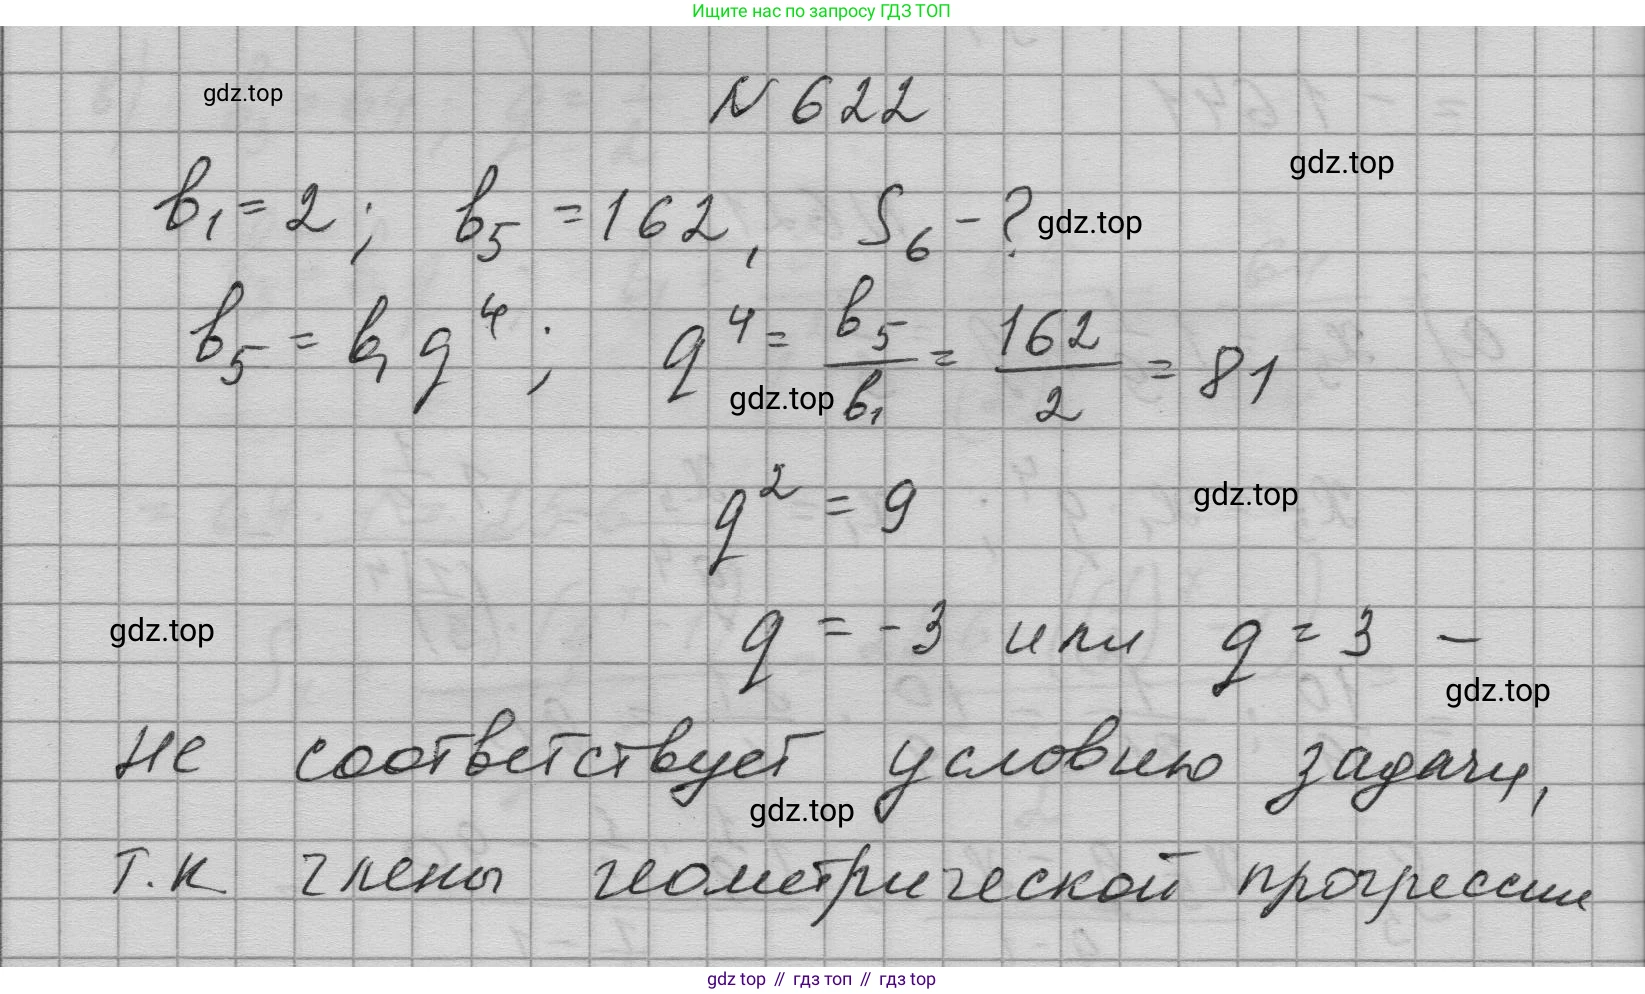 Ищите нас по запросу ГДЗ ТОП
gdz.top
N 622
gdz.top
b₁ = 2; b₅ = 162, S₆ - ? gdz.top
b₅ = b₁ q⁴; q⁴ = b₅/b₁ = 162/2 = 81
gdz.top
q² = 9
gdz.top
q = -3 или q = 3 –
gdz.top
gdz.top
не соответствует условию задачи,
gdz.top
т.к члены геометрической прогрессии
gdz top // гдз топ // гдз top